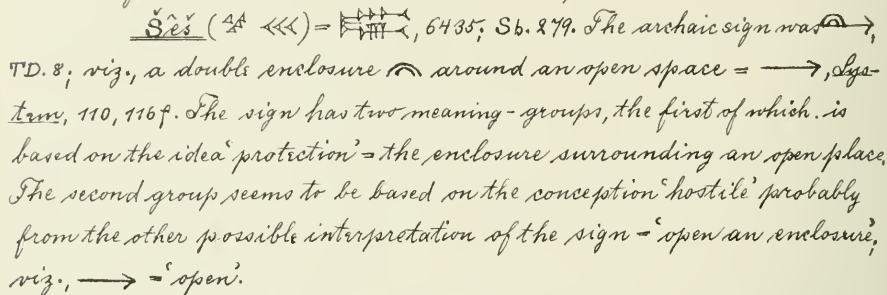 Šêš ( ) = , 6435; Sb. 279. The archaic sign was ,
TD. 8; viz., a double enclosure around an open space = ⟶, Sys-
tem, 110, 116f. The sign has two meaning-groups, the first of which. is
based on the idea 'protection' = the enclosure surrounding an open place.
The second group seems to be based on the conception 'hostile' probably
from the other possible interpretation of the sign = 'open an enclosure',
viz., ⟶ = 'open'.